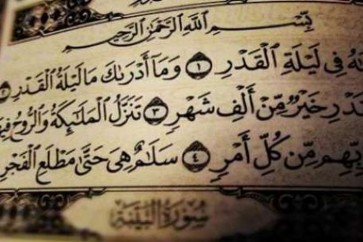 بِسْمِ اللَّهِ الرَّحْمَٰنِ الرَّحِيمِ
فِي لَيْلَةِ الْقَدْرِ ١ وَمَا أَدْرَىٰكَ مَا لَيْلَةُ الْقَدْرِ ٢
خَيْرٌ مِّنْ أَلْفِ شَهْرٍ ٣ تَنَزَّلُ الْمَلَٰٓئِكَةُ وَالرُّوحُ
مِّن كُلِّ أَمْرٍ ٤ سَلَٰمٌ هِيَ حَتَّىٰ مَطْلَعِ الْفَجْرِ
سُورَةُ الْبَيِّنَةِ